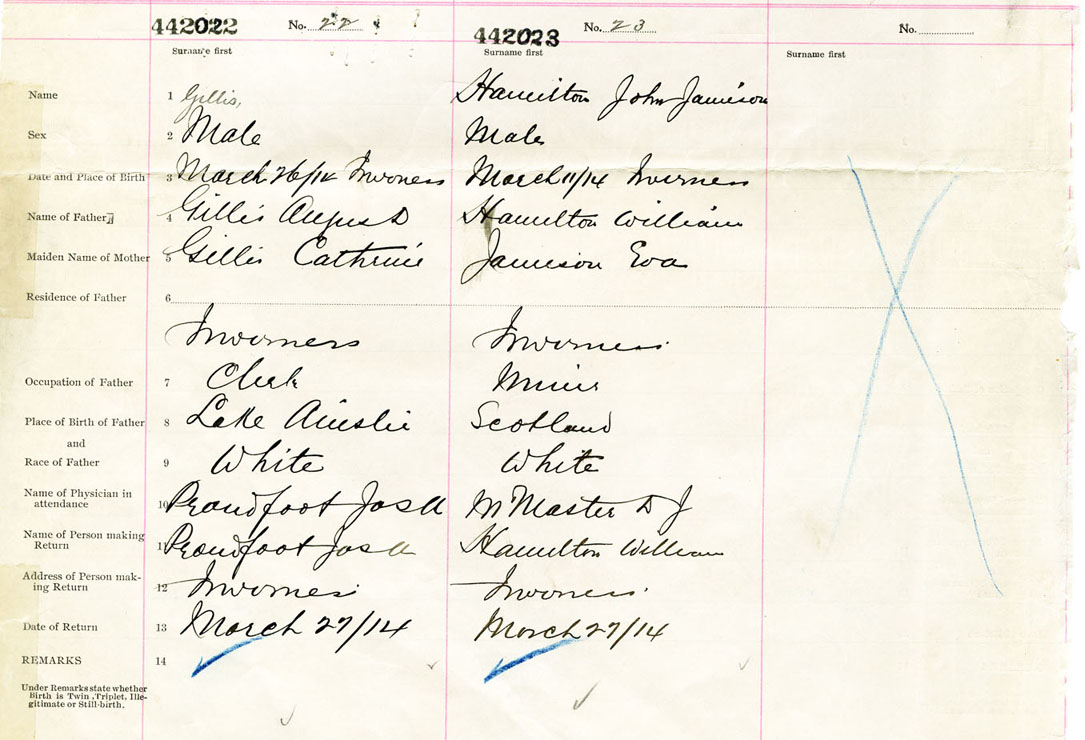 442022 No. 22 442023 No. 23 No.
Surname first Surname first Surname first
Name 1 Gillis, Hamilton John Jamieson
Sex 2 Male Male
Date and Place of Birth 3 March 26/14 Inverness March 11/14 Inverness
Name of Father 4 Gillis August D Hamilton William
Maiden Name of Mother 5 Gillis Cathrine Jamieson Eva
Residence of Father 6
Inverness Inverness
Occupation of Father 7 Clerk Miner
Place of Birth of Father 8 Lake Ainslie Scotland
and
Race of Father 9 White White
Name of Physician in
attendance 10 Proudfoot Jas A McMaster D J
Name of Person making
Return 11 Proudfoot Jas A Hamilton William
Address of Person mak-
ing Return 12 Inverness Inverness
Date of Return 13 March 27/14 March 27/14
REMARKS 14
Under Remarks state whether
Birth is Twin, Triplet, Ille-
gitimate or Still-birth.